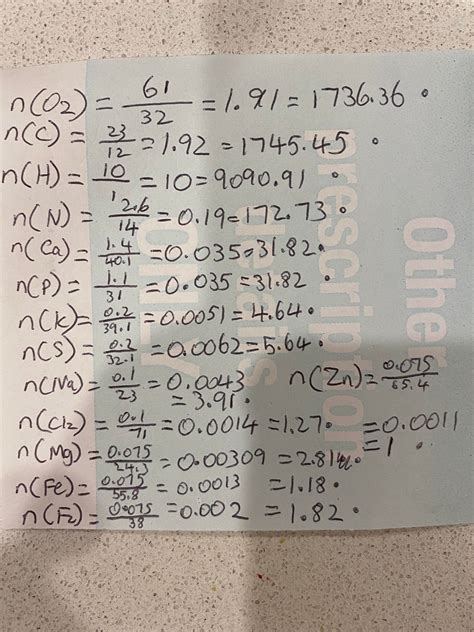 n(O2) = 61/32 = 1.91 = 1736.36 •
n(C) = 23/12 = 1.92 = 1745.45 •
n(H) = 10/1 = 10 = 9090.91 •
n(N) = 2.6/14 = 0.19 = 172.73 •
n(Ca) = 1.4/40.1 = 0.035 = 31.82 •
n(P) = 1.1/31 = 0.035 = 31.82 •
n(K) = 0.2/39.1 = 0.0051 = 4.64 •
n(S) = 0.2/32.1 = 0.0062 = 5.64 •
n(Na) = 0.1/23 = 0.0043
= 3.91 •
n(Cl2) = 0.1/71 = 0.0014 = 1.27 •
n(Mg) = 0.075/24.3 = 0.00309 = 2.81
n(Fe) = 0.075/55.8 = 0.0013 = 1.18 •
n(F2) = 0.075/38 = 0.002 = 1.82 •
n(Zn) = 0.075/65.4
= 0.0011
= 1 •
Other
prescription
ONLY